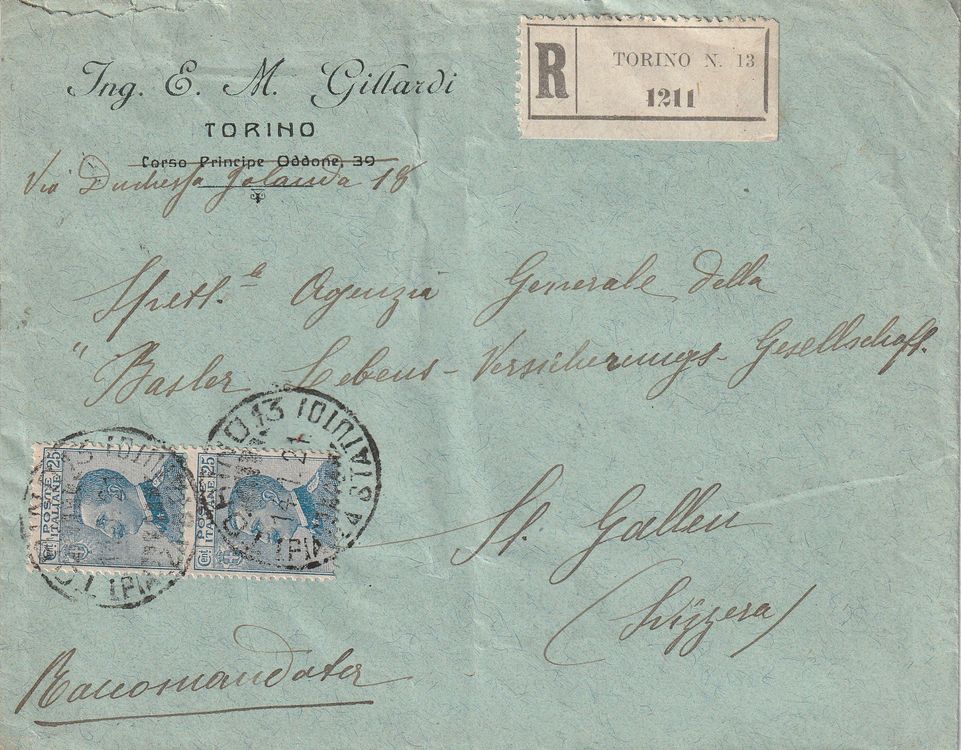 Ing. E. M. Gillardi
TORINO
Corso Principe Oddone, 39
Via Duchessa Jolanda 18
R
TORINO N. 13
1211
Spett.le Agenzia Generale della
"Basler Lebens-Versicherungs-Gesellschaft.
St. Gallen
(Svizzera)
Raccomandata
Cent 25
POSTE
ITALIANE
Cent 25
POSTE
ITALIANE
TORINO 13